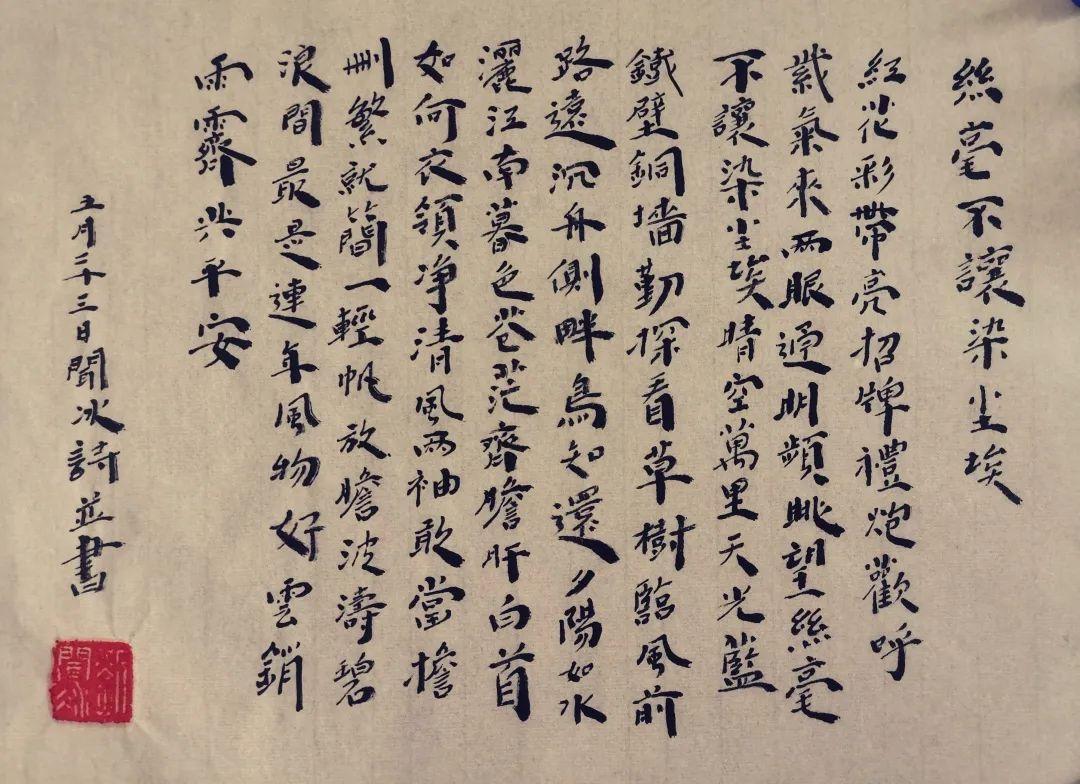 絲毫不讓染尘埃
紅花彩帶亮招牌禮炮歡呼
紫氣來兩眼通明頻眺望絲毫
不讓染尘埃晴空萬里天光藍
鐵壁銅墙勤探看草樹臨風前
路遠沉舟側畔鳥知還夕陽如水
灑江南暮色苍茫齊膽肝白首
如何衣領净清風兩袖敢當擔
刪繁就簡一輕帆放膽波濤碧
浪間最是連年風物好雲銷
雨霽共平安
五月二十三日聞冰詩並書